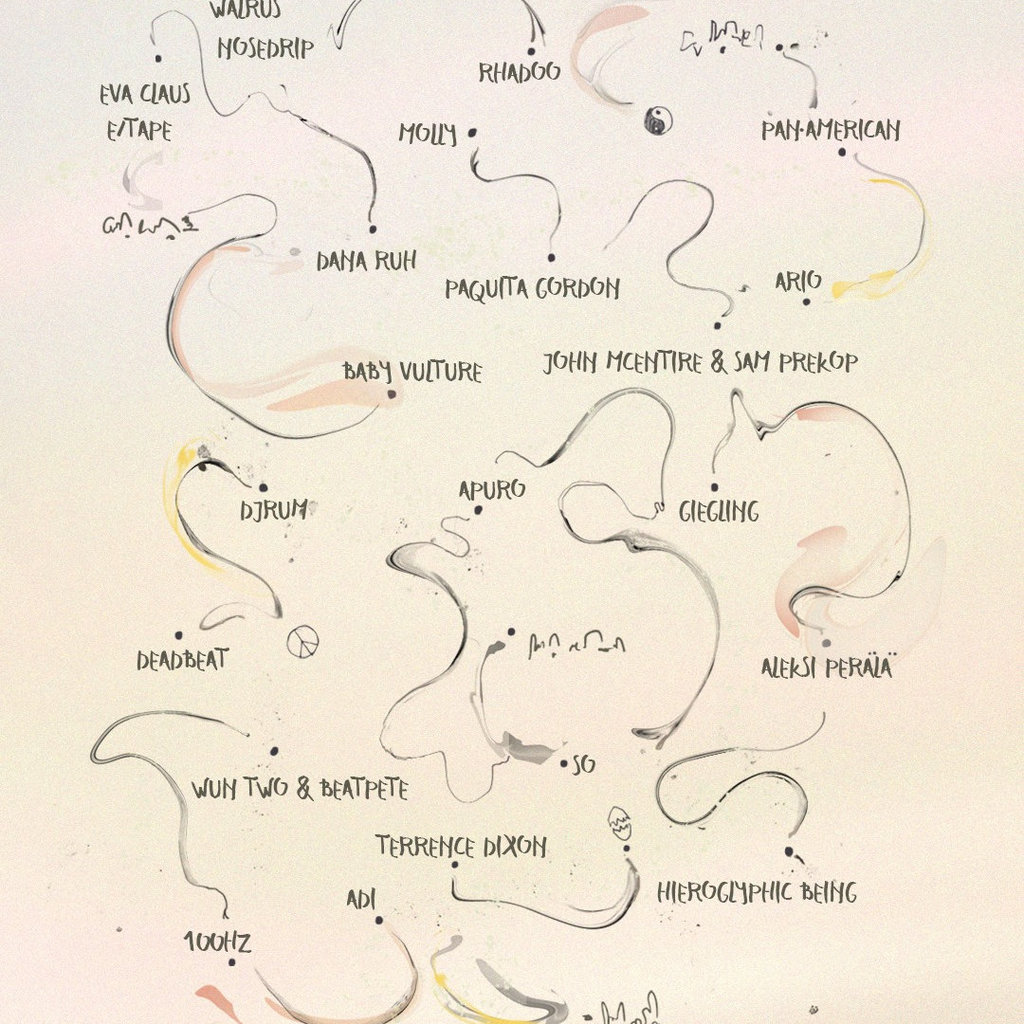 WALRUS
NOSEDRIP
RHADOO
EVA CLAUS
E/TAPE
MOLLY
PAN•AMERICAN
DANA RUH
PAQUITA GORDON
ARIO
JOHN MCENTIRE & SAM PREKOP
BABY VULTURE
APURO
DJRUM
GIEGLING
DEADBEAT
ALEKSI PERÄLÄ
SO
WUN TWO & BEATPETE
TERRENCE DIXON
HIEROGLYPHIC BEING
ADI
100HZ